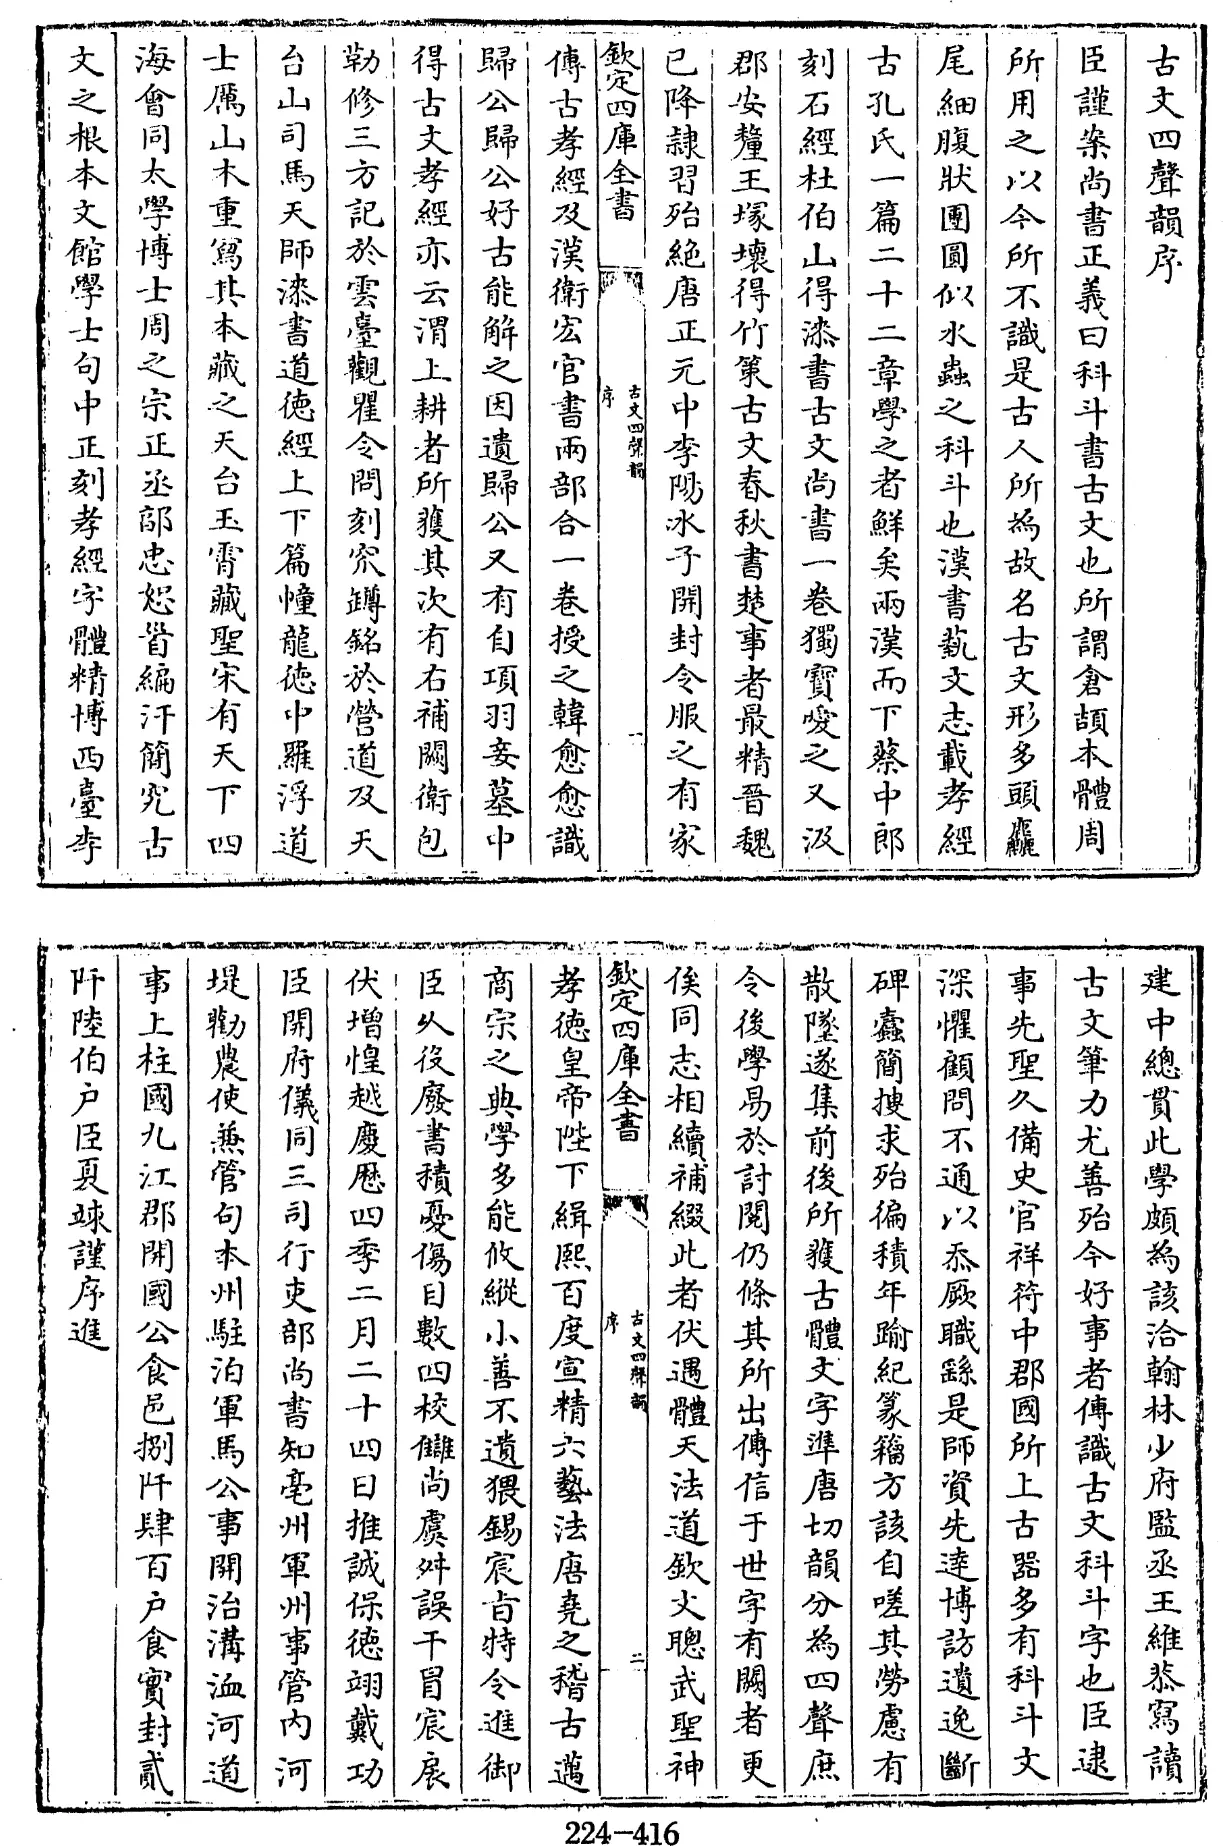 古文四聲韻序
臣謹案尚書正義曰科斗書古文也所謂倉頡本體周
所用之以今所不識是古人所為故名古文形多頭麤
尾細腹狀團圓似水蟲之科斗也漢書蓺文志載孝經
古孔氏一篇二十二章學之者鮮矣兩漢而下蔡中郎
刻石經杜伯山得漆書古文尚書一卷獨寶愛之又汲
郡安釐王塚壞得竹策古文春秋書楚事者最精晉魏
已降隷習殆絶唐正元中李陽冰子開封令服之有家
欽定四庫全書
古文四聲韻
序
一
傳古孝經及漢衛宏官書兩部合一卷授之韓愈愈識
歸公歸公好古能解之因遺歸公又有自項羽妾墓中
得古文孝經亦云渭上耕者所獲其次有右補闕衛包
勒修三方記於雲臺觀瞿令問刻窊罇銘於營道及天
台山司馬天師漆書道德經上下篇幢龍德中羅浮道
士厲山木重寫其本藏之天台玉霄藏聖宋有天下四
海會同太學博士周之宗正丞郭忠恕首編汗簡究古
文之根本文館學士句中正刻孝經字體精博西臺李
建中總貫此學頗為該洽翰林少府監丞王維恭寫讀
古文筆力尤善殆今好事者傳識古文科斗字也臣逮
事先聖久備史官祥符中郡國所上古器多有科斗文
深懼顧問不通以忝厥職繇是師資先達博訪遺逸斷
碑蠹簡搜求殆徧積年踰紀篆籀方該自嗟其勞慮有
散墜遂集前後所獲古體文字準唐切韻分為四聲庶
令後學易於討閱仍條其所出傳信于世字有闕者更
俟同志相續補綴此者伏遇體天法道欽文聰武聖神
欽定四庫全書
古文四聲韻
序
二
孝德皇帝陛下緝熙百度宣精六藝法唐堯之稽古邁
商宗之典學多能攸縱小善不遺猥錫宸旨特令進御
臣久役廢書積憂傷目數四校讎尚虞舛誤干冒宸扆
伏增惶越慶厯四季二月二十四日推誠保德翊戴功
臣開府儀同三司行吏部尚書知亳州軍州事管内河
堤勸農使兼管句本州駐泊軍馬公事開治溝洫河道
事上柱國九江郡開國公食邑捌阡肆百户食實封貳
阡陸伯户臣夏竦謹序進
224-416